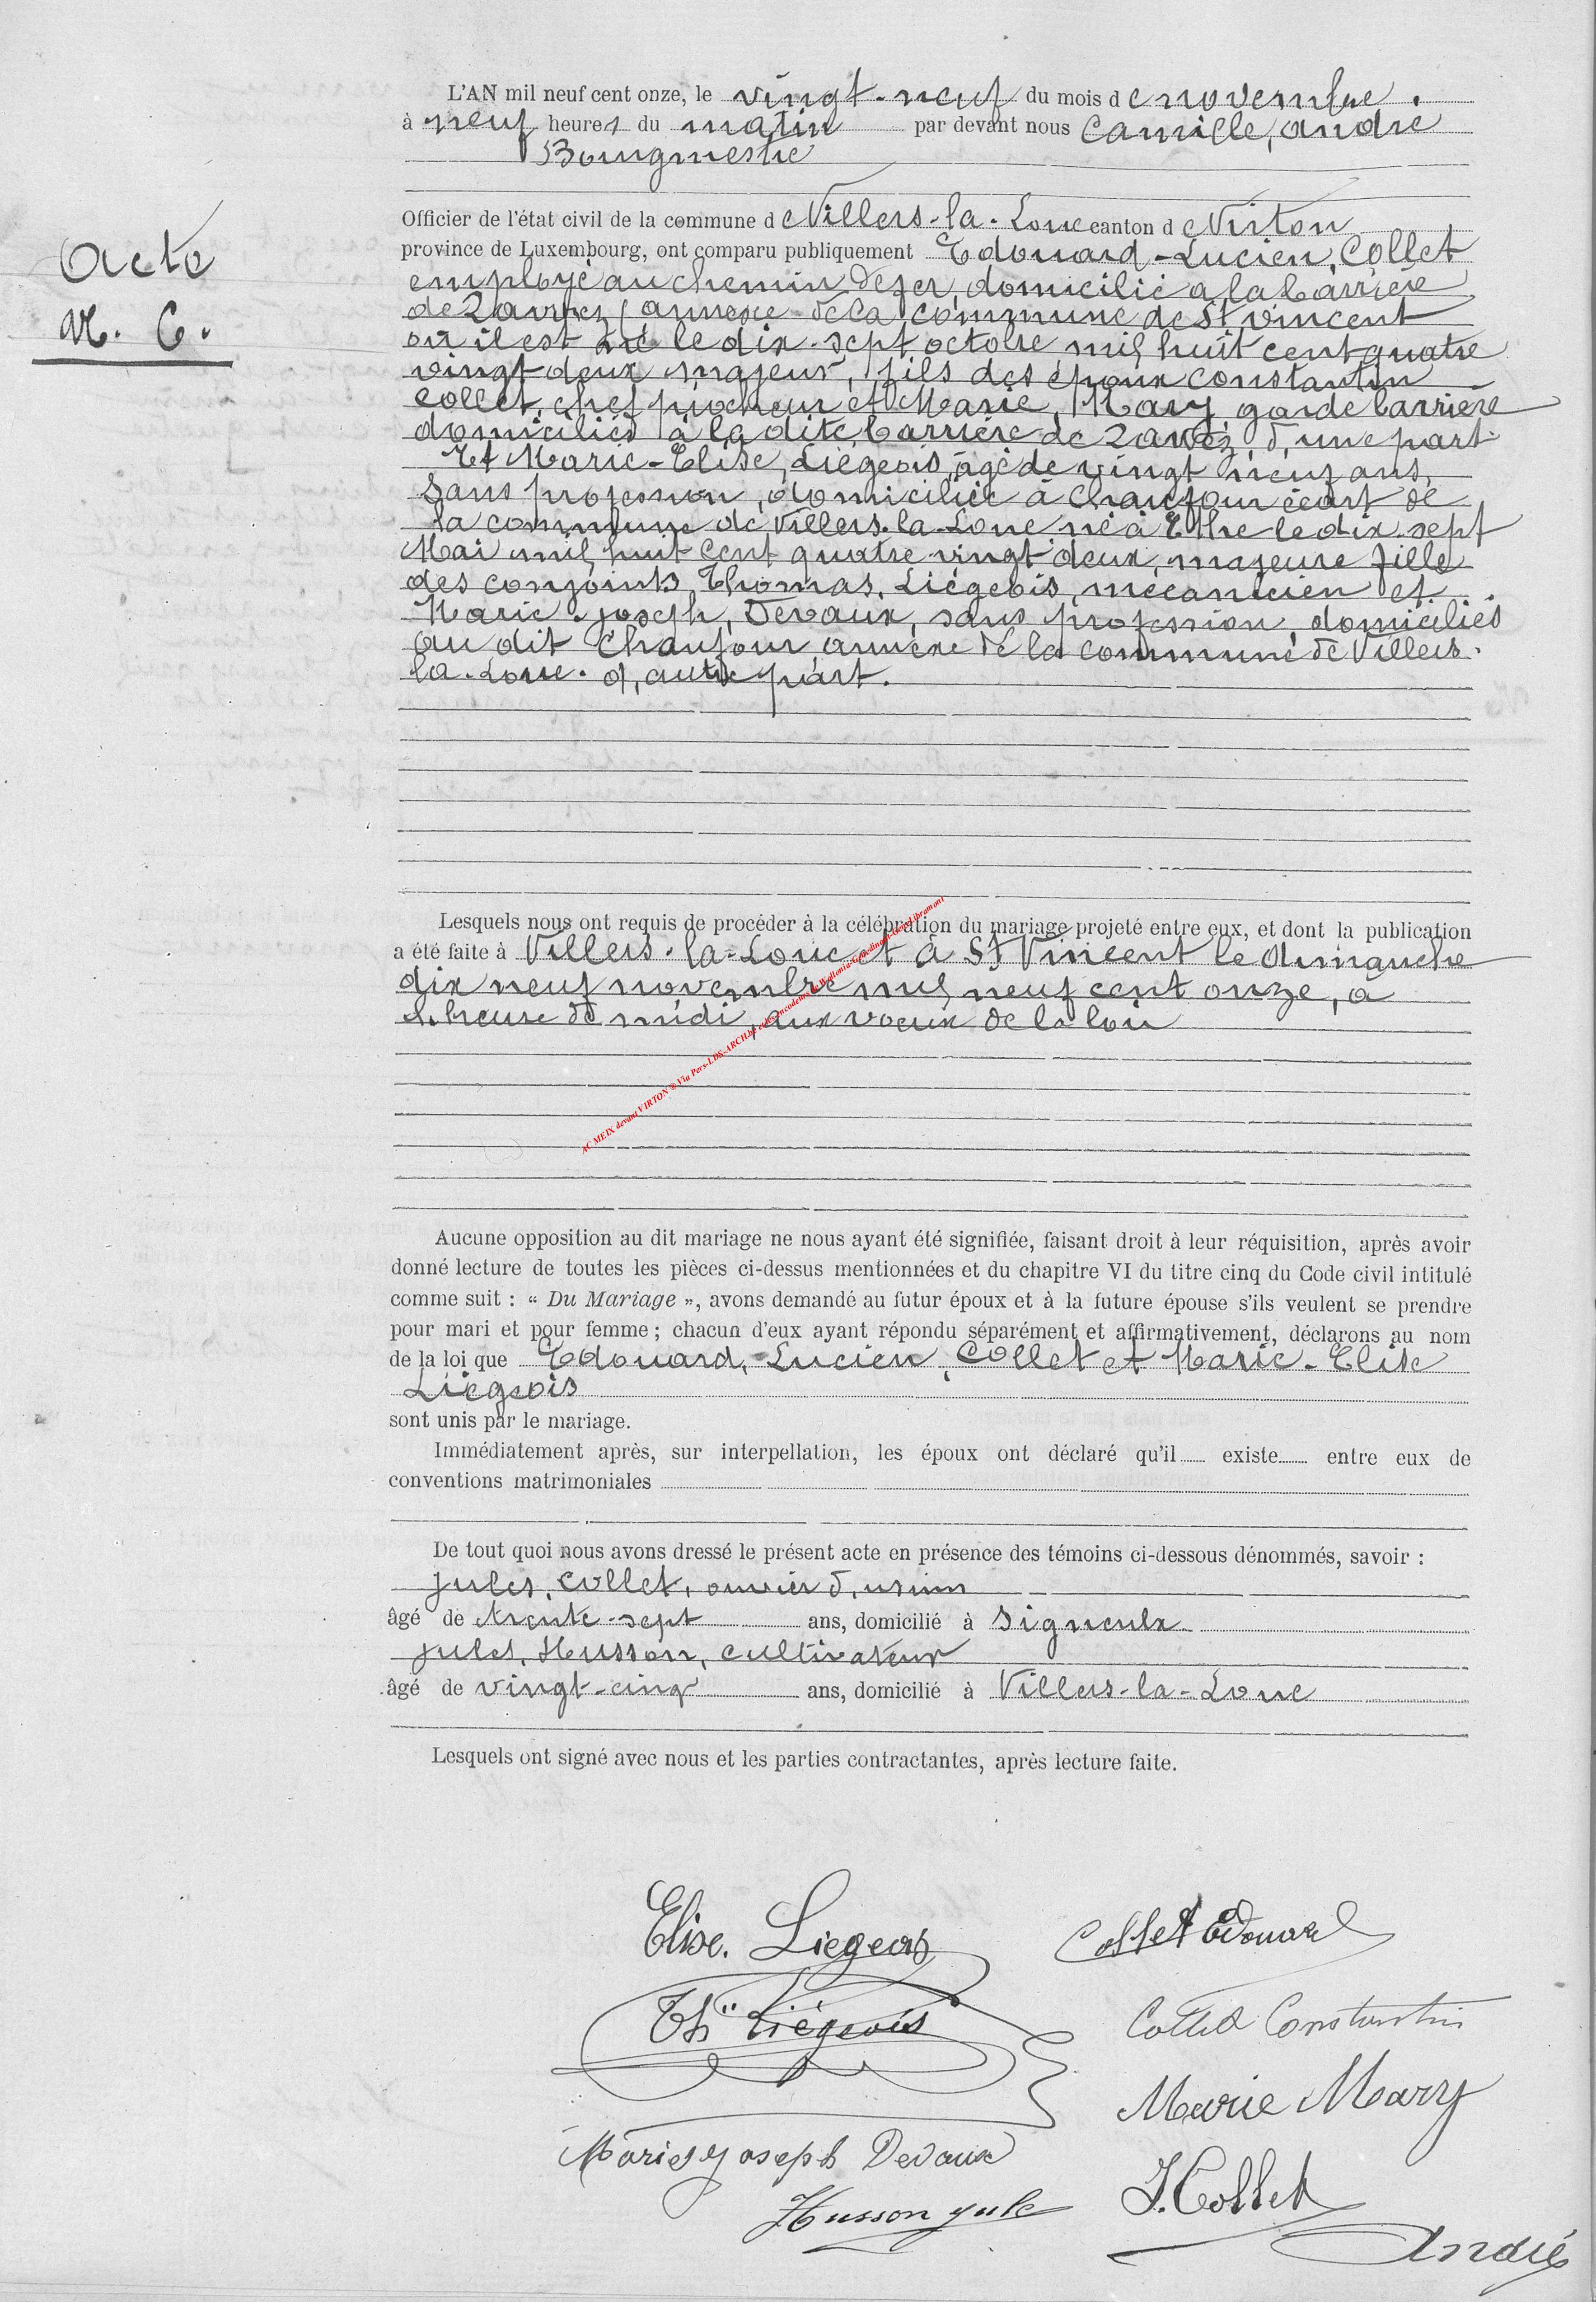 L'AN mil neuf cent onze, le vingt-neuf du mois de novembre.
à neuf heures du matin par devant nous Camille, André
Bourgmestre
Acte
N. 6.
Officier de l'état civil de la commune de Villers-la-Loue canton de Virton
province de Luxembourg, ont comparu publiquement Edouard-Lucien, Collet
employé au chemin de fer, domicilié à la barrière
de annexe de la commune de St Vincent
où il est né le dix-sept octobre mil huit cent quatre
vingt deux majeur, fils des époux Constantin
Collet, chef piocheur et Marie, Mary garde barrière
domiciliés à la dite barrière de d'une part.
Et Marie-Elise, Liégeois, âgé de vingt neuf ans,
sans profession, domiciliée à Chaufour écart de
la commune de Villers-la-Loue né à Ethe le dix-sept
Mai mil huit cent quatre vingt deux, majeure fille
des conjoints, Thomas, Liégeois, mécanicien et
Marie-Joseph, Devaux, sans profession, domiciliés
au dit Chaufour annexe de la commune de Villers-
la-Loue. d'autre part.
Lesquels nous ont requis de procéder à la célébration du mariage projeté entre eux, et dont la publication
a été faite à Villers-la-Loue et à St Vincent le dimanche
dix neuf novembre mil neuf cent onze, à
l'heure de midi, aux voeux de la loi
AC MEIX devant VIRTON ® Via Pers-LDS-ARCH.
Aucune opposition au dit mariage ne nous ayant été signifiée, faisant droit à leur réquisition, après avoir
donné lecture de toutes les pièces ci-dessus mentionnées et du chapitre VI du titre cinq du Code civil intitulé
comme suit : « Du Mariage », avons demandé au futur époux et à la future épouse s'ils veulent se prendre
pour mari et pour femme ; chacun d'eux ayant répondu séparément et affirmativement, déclarons au nom
de la loi que Edouard,-Lucien, Collet et Marie-Elise
Liégeois
sont unis par le mariage.
Immédiatement après, sur interpellation, les époux ont déclaré qu'il existe entre eux de
conventions matrimoniales
De tout quoi nous avons dressé le présent acte en présence des témoins ci-dessous dénommés, savoir :
Jules, Collet, ouvrier d'usine
âgé de trente-sept ans, domicilié à Signeulx
Jules, Husson, cultivateur
âgé de vingt-cinq ans, domicilié à Villers-la-Loue
Lesquels ont signé avec nous et les parties contractantes, après lecture faite.
Elise. Liegeois
Collet Edouard
Th Liégeois
Collet Constantin
Marie Mary
Marie Joseph Devaux
J. Collet
Husson Jule
André